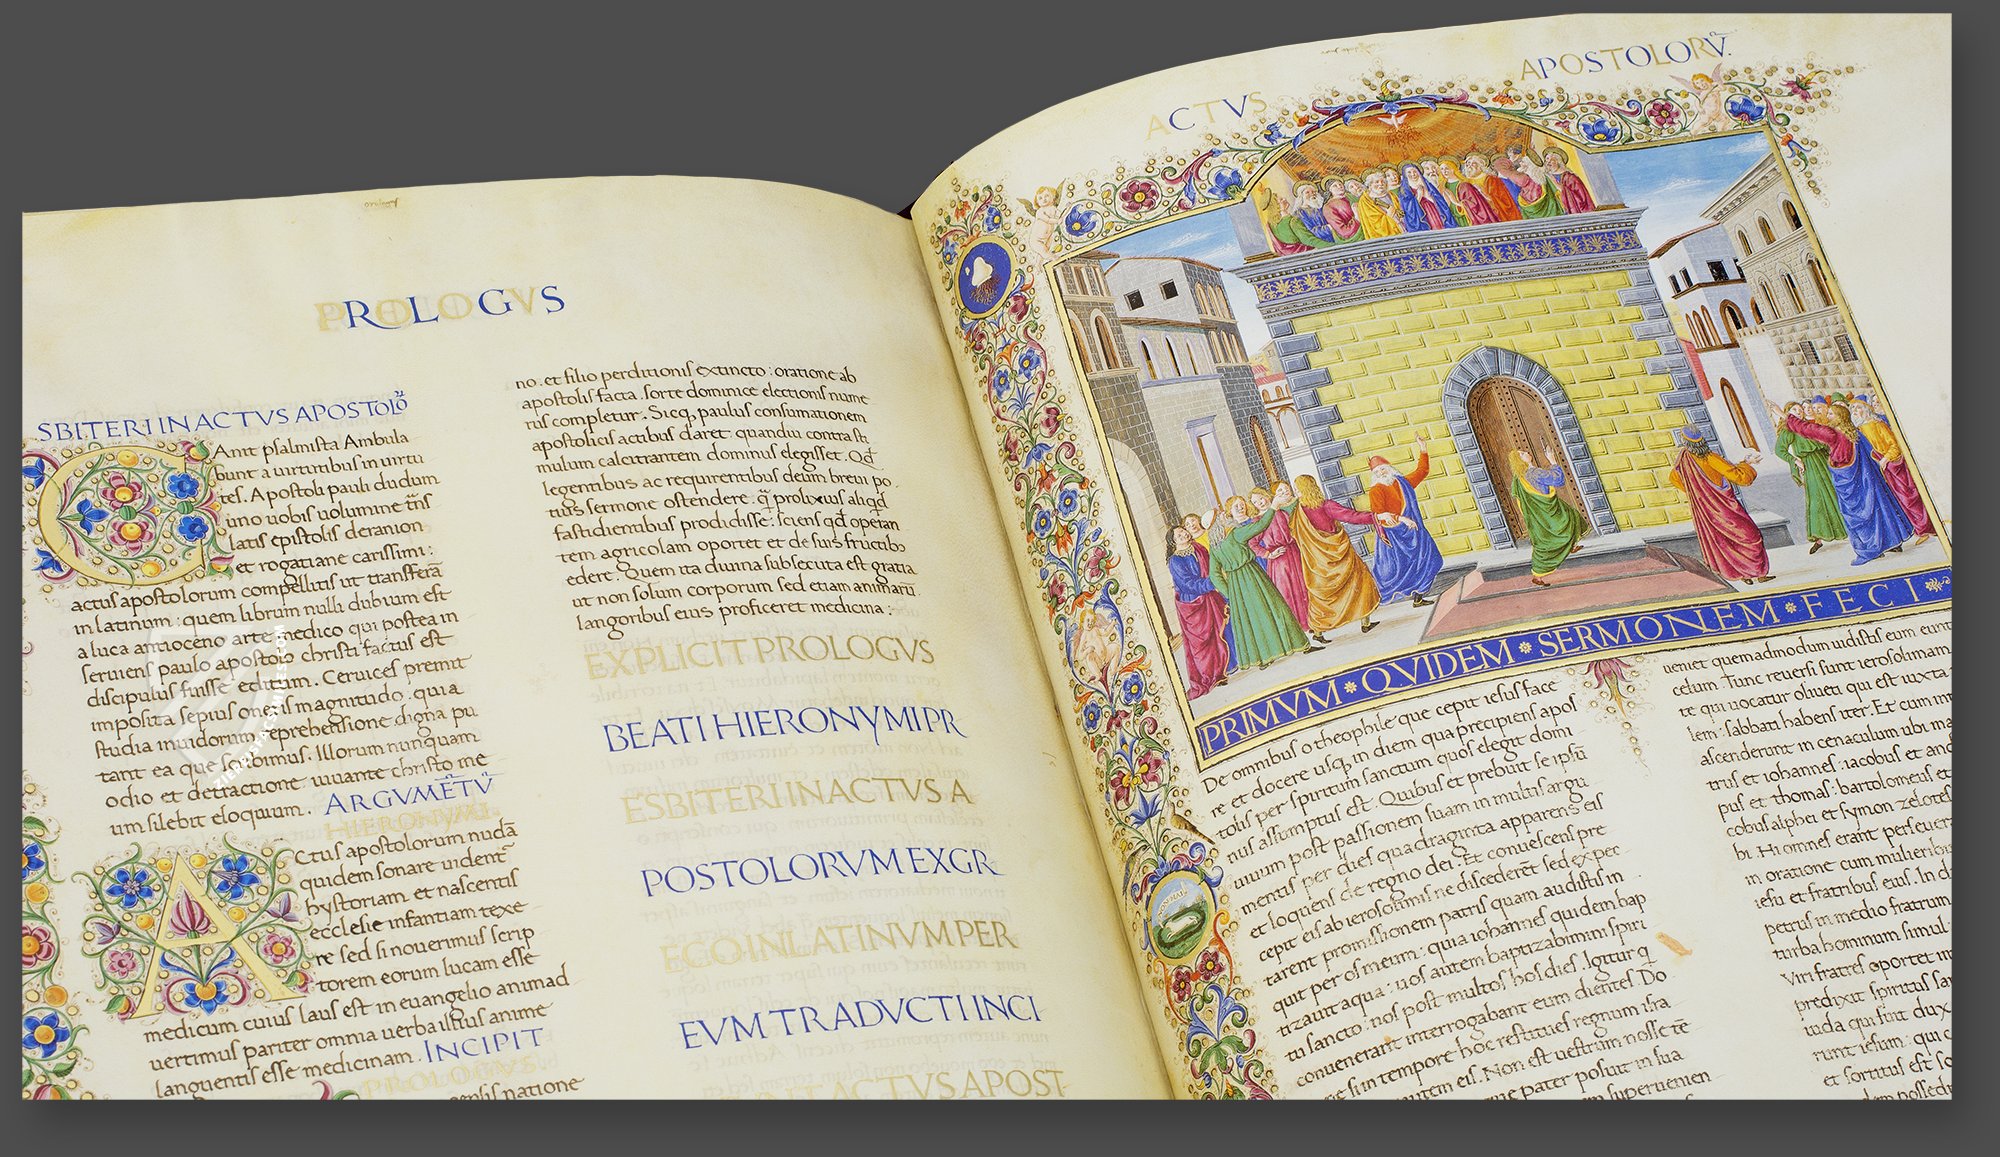 PROLOGVS
SBITERI IN ACTVS APOSTOLO℞
CAnit psalmista Ambula
bunt a uirtutibus in uirtu
tes. Apostoli pauli dudum
uno uobis uolumine trās
latis epistolis deranion
et rogatiane carissimi:
actus apostolorum compellitis ut transferā
in latinum: quem librum nulli dubium est
a luca antioceno arte medico qui postea in
seruiens paulo apostolo christi factus est
discipulus fuisse editum. Ceruices premit
imposita sepius oneris magnitudo: quia
studia inuidorum reprehensione digna pu
tant ea que scribimus. Illorum nunquam
odio et detractione uiuante christo me
um silebit eloquium. ARGVMĒTV̄
HIERONYMI.
ACtus apostolorum nudā
quidem sonare uidentˉ
hystoriam et nascentis
ecclesie infantiam texe
re sed si nouerimus scrip
torem eorum lucam esse
medicum cuius laus est in euangelio animad
uertimus pariter omnia uerba illius anime
languentis esse medicinam. INCIPIT
PROLOGVS
no. et filio perditionis extincto: oratione ab
apostolis facta. sorte dominice electionis nume
rus completur. Sicq; paulus consumationem
apostolicis actibus daret quandiu contra sti
mulum calcitrantem dominus elegisset. Qd̄
legentibus ac requirentibus deum breui po
tius sermone ostendere. q̄ prolixius aliqd
fastidientibus prodidisse: sciens qd̄ operan
tem agricolam oportet et de suis fructibȝ
edere. Quem ita diuina subsecuta est gratia
ut non solum corporum sed etiam animarū
langoribus eius proficeret medicina:
EXPLICIT PROLOGVS
BEATI HIERONYMI PR
ESBITERI IN ACTVS A
POSTOLORVM EX GR
ECO IN LATINVM PER
EVM TRADVCTI INCI
ACTVS APOST
ACTVS APOSTOLORV̄.
PRIMVM QVIDEM SERMONEM FECI
De omnibus o theophile que cepit iesus face
re et docere usq; in diem qua precipiens apos
tolis per spiritum sanctum quos elegit domi
nus assumptus est. Quibus et prebuit se ipsū
uiuum post passionem suam in multis argu
mentis per dies quadraginta apparens eis
et loquens de regno dei. Et conuescens pre
cepit eis ab ierosolimis ne discederēt sed expec
tarent promissionem patris quam audistis in
quit per os meum: quia iohannes quidem bap
tizauit aqua: uos autem baptizabimini spiri
tu sancto: nos post multos hos dies. Igitur q
conuenerant interrogabant eum dientes. Do
si in tempore hoc restitues regnum isra
autem eis. Non est uestrum nosse tē
que pater posuit in sua
superuenien
ueniet quemadmodum uidistis eum eunt
celum. Tunc reuersi sunt ierosolimam
te qui uocatur oliueti qui est iuxta
lem: sabbati habens iter. Et cum int
ascenderunt in cenaculum ubi ma
trus et iohannes: iacobus et and
pus et thomas: bartolomeus et
cobus alphei et symon zelotes
bi. Hi omnes erant perseuera
in oratione cum mulieribus
iesu et fratribus eius. In d
petrus in medio fratrum
turba hominum simul
Viri fratres oportet im
predixit spiritus san
iuda qui fuit dux
runt iesum: qui c
et sortitus est so
possed
ZIEREIS FACSIMILES.COM